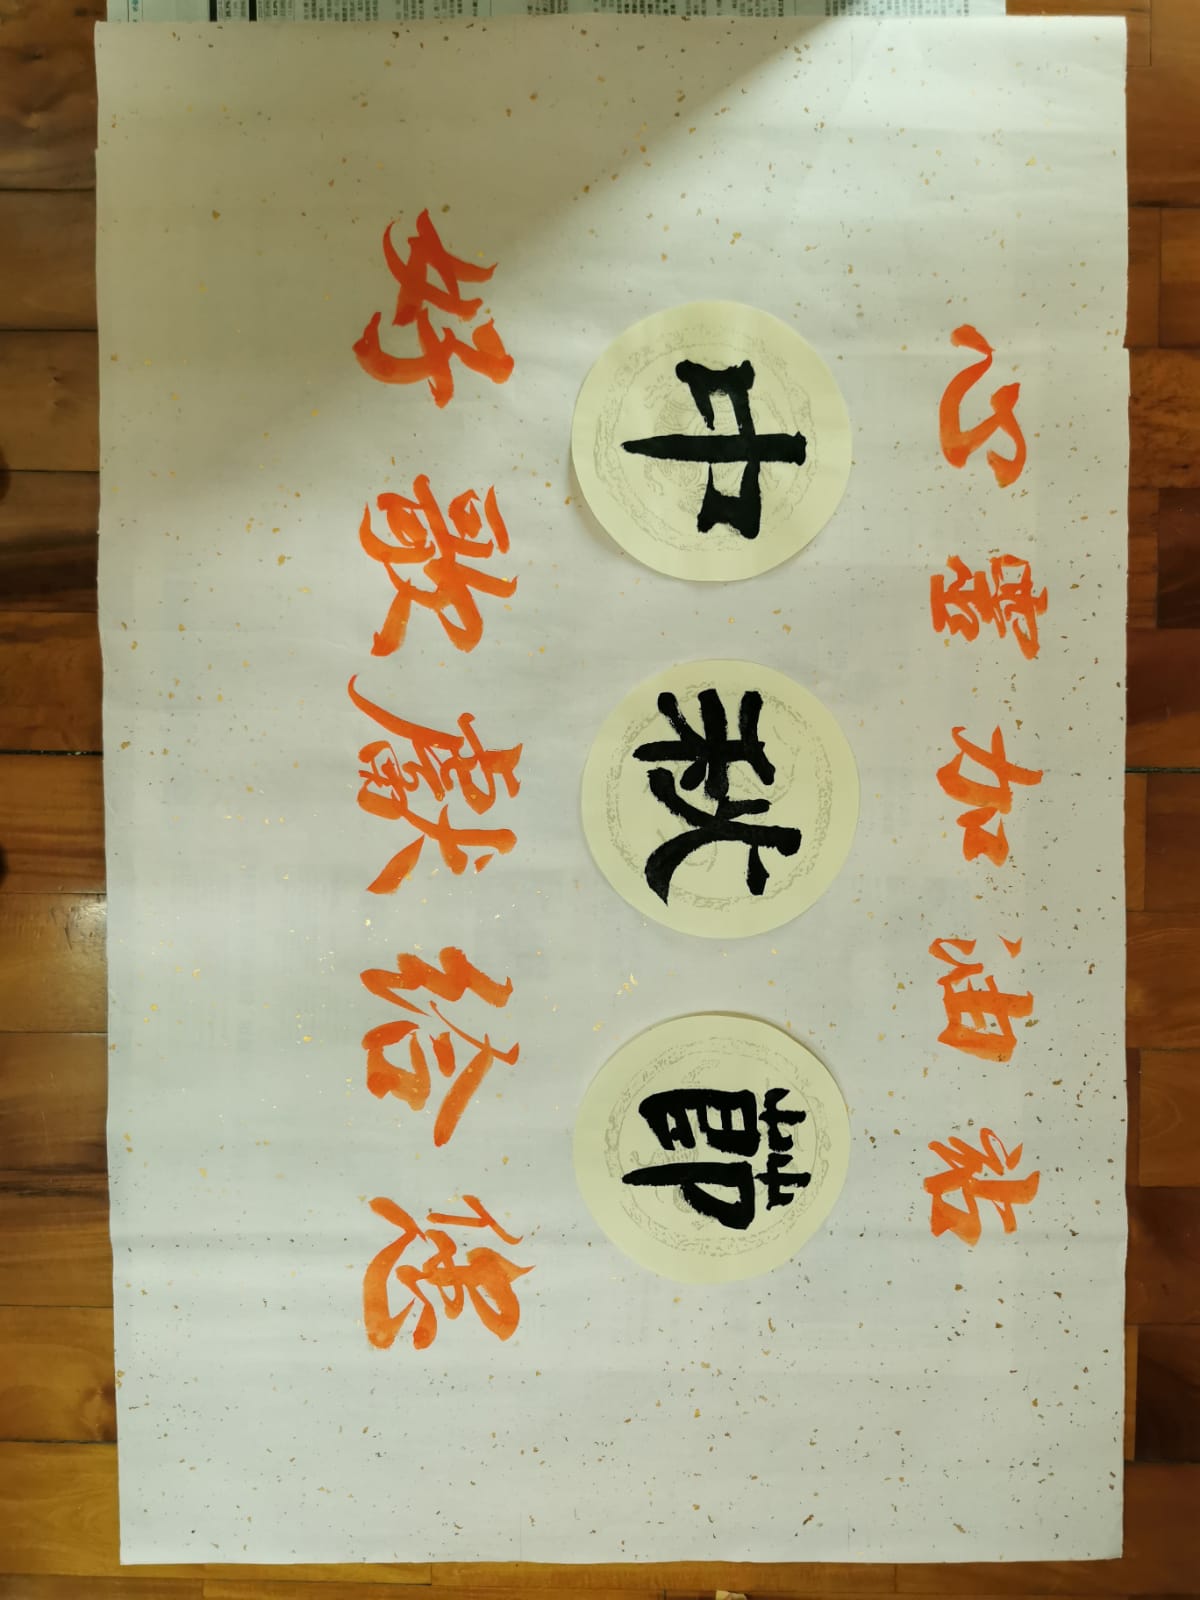 心靈加油站
中秋節
好歌獻給您